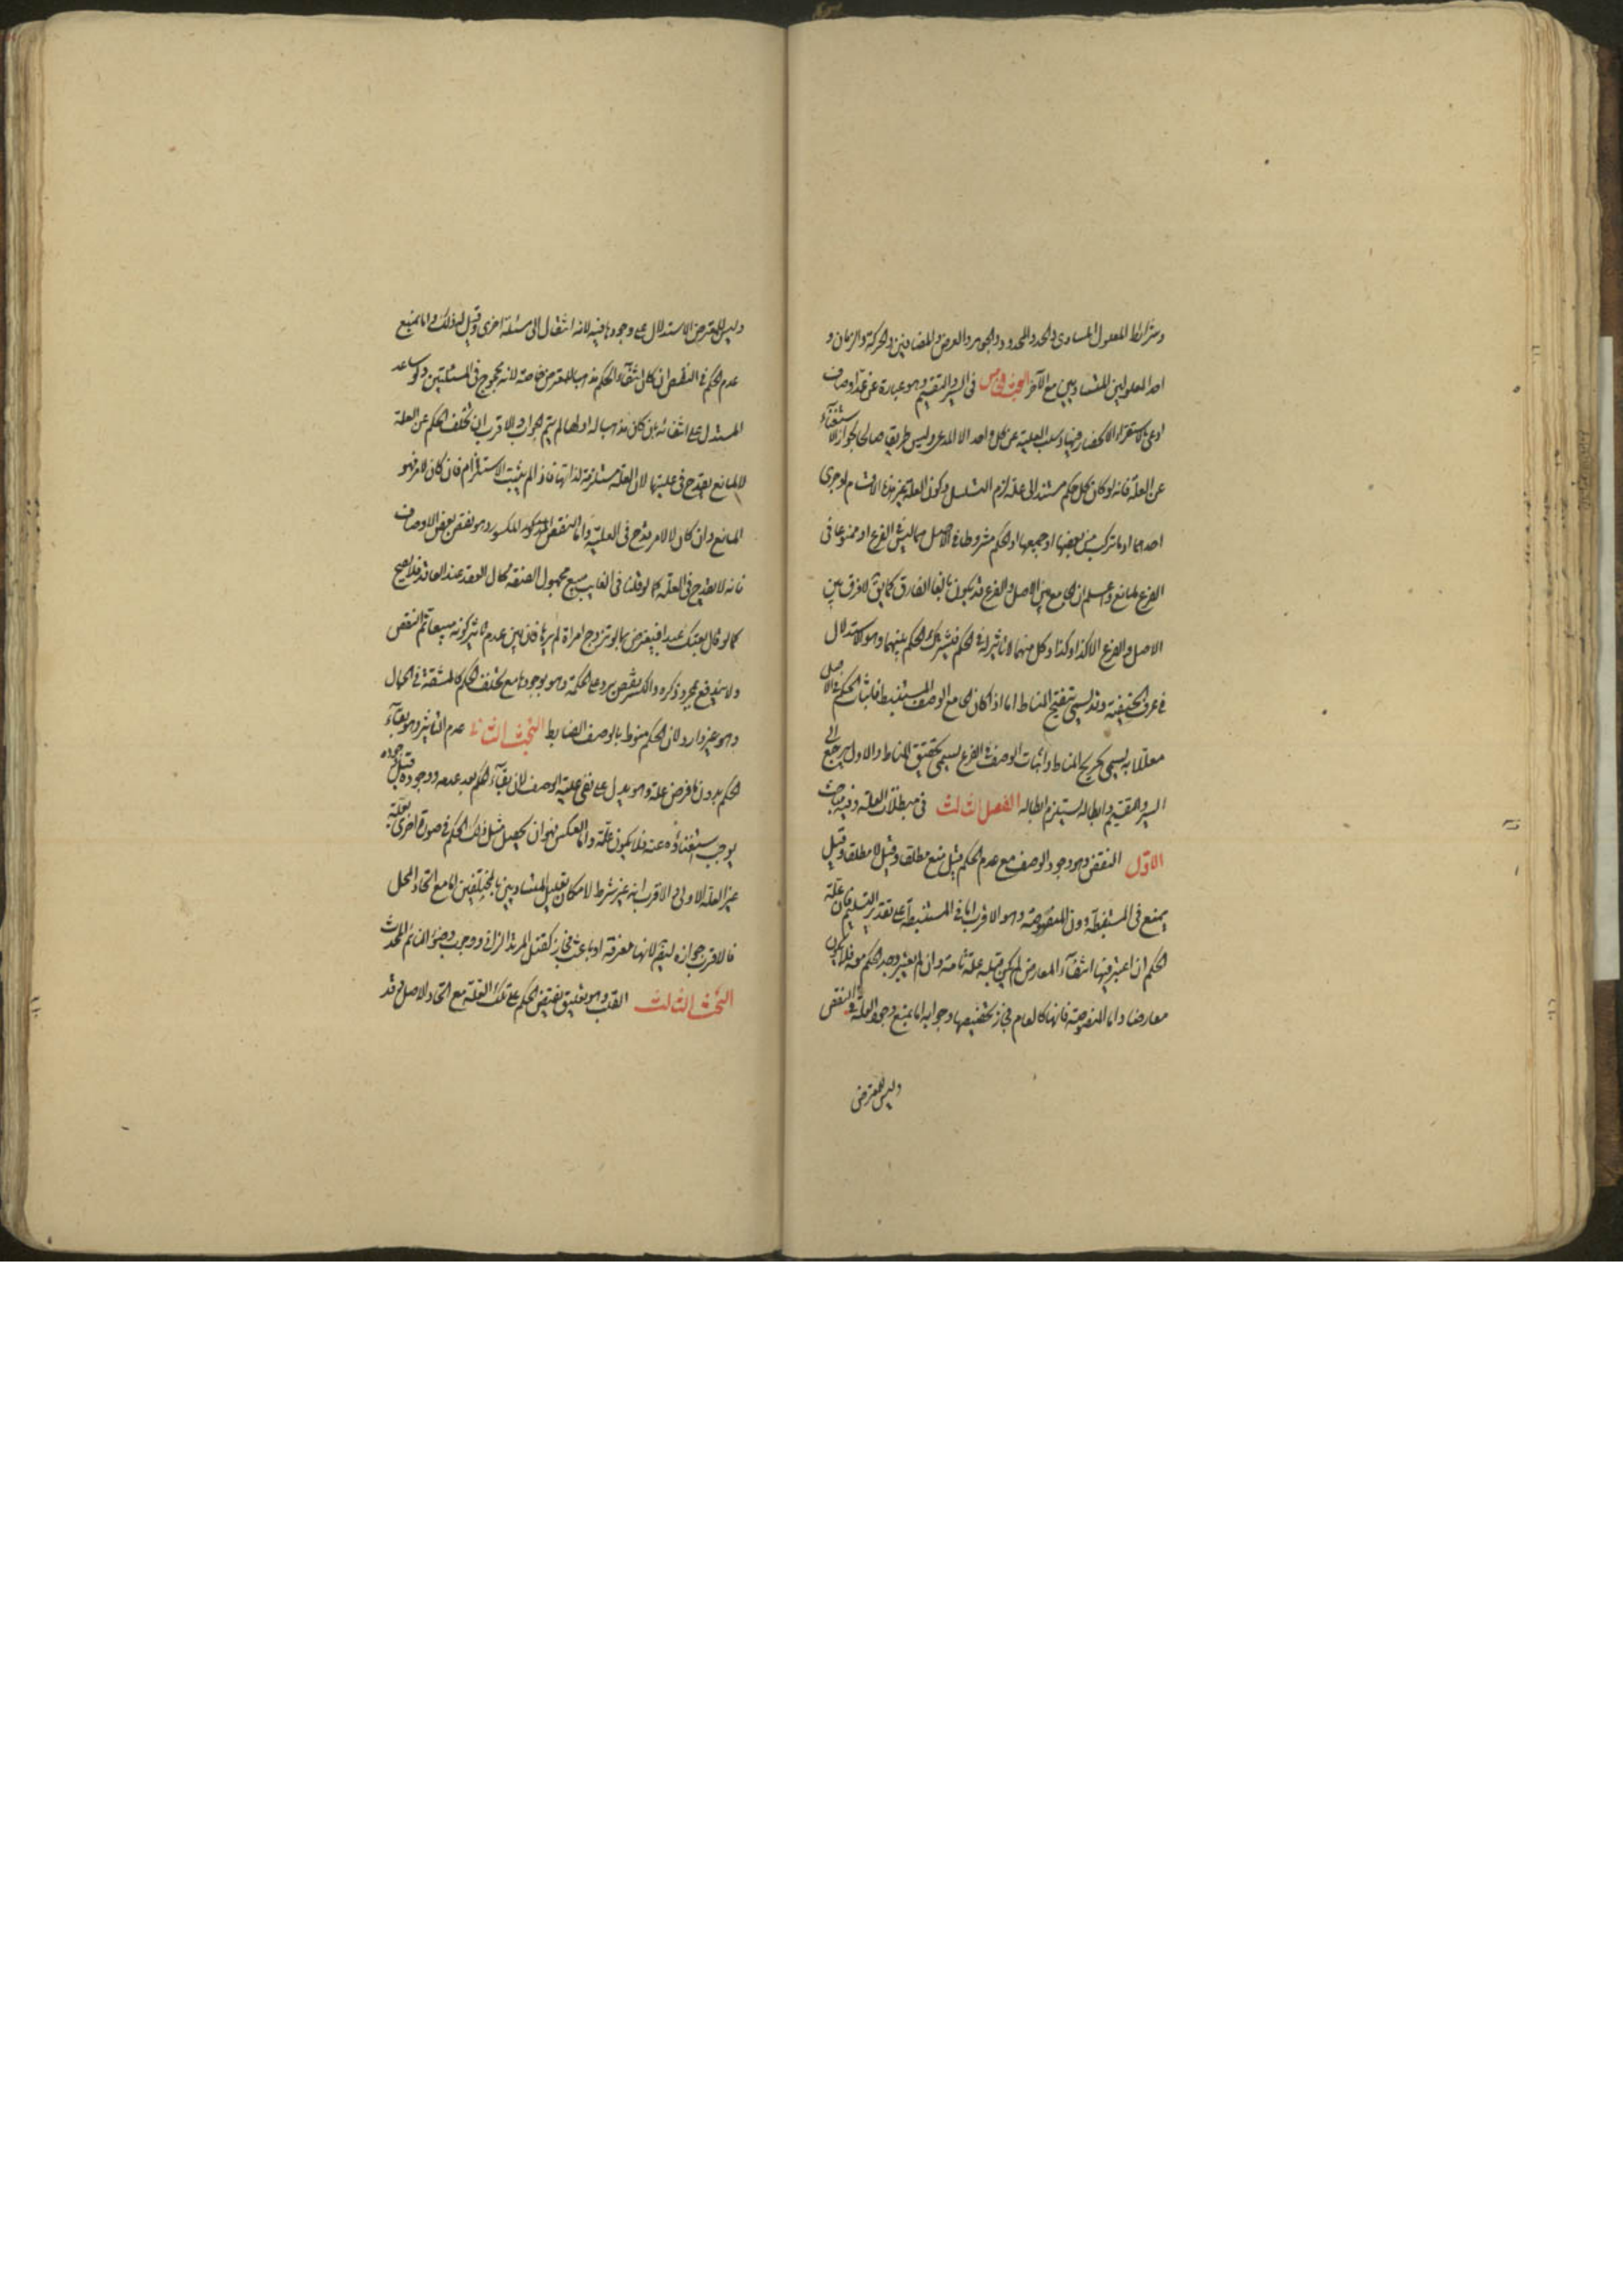 وشرائط المعلول المساوى والحد والمحدود والجوهر والعرض والمضافين والحركة والزمان و
احد المعلولين المتساويين مع الآخر البحث الخامس فى السبر والتقسيم وهو عبارة عن عد اوصاف
ادعى بالاستقراء الانحصار فيها وسلب العلية عن كل واحد الا المدعى وليس طريقا صالحا لجواز الاستغناء
عن العلة فانه لو كان كل حكم مستندا الى علة لزم التسلسل وكون العلة غير هذه الاقسام او جزئى
احدهما او ما تركب من بعضها او جميعها او الحكم مشروطا فى الاصل بما ليس فى الفرع او ممنوعا فى
الفرع لمانع واعلم ان الجامع بين الاصل والفرع قد يكون بالغا الفارق كما يق لا فرق بين
الاصل والفرع الا كذا وكذا وكل منهما لا تاثير له فى الحكم فيشترك الحكم بينهما وهو الاستدلال
فى عرف الحنيفية وقد يسمى تنقيح المناط اما اذا كان الجامع الوصف المستنبط فاثبات الحكم فى الاصل
معللا به يسمى تخريج المناط واثبات الوصف فى الفرع يسمى تحقيق المناط والاول يرجع الى
السبر والتقسيم وابطاله يستلزم ابطاله الفصل الثالث فى مبطلات العلة وفيه مباحث
الاول النقض وهو وجود الوصف مع عدم الحكم قيل يمنع مطلقا وقيل لا مطلقا وقيل
يمنع فى المستنبطة دون المنصوصة وهو الاقرب اما فى المستنبطة على تقدير التسليم فان علة
الحكم ان اعتبر فيها انتفاء المعارض لم يكن قبله علة تامة وان لم يعتبر وجد الحكم معه فلا يكون
معارضا واما المنصوصة فانها كالعام فجاز تخصيصها وجوابه اما بمنع وجود العلة فى النقض
وليس للمعترض
وليس للمعترض الاستدلال على وجودها فيه لانه انتقال الى مسئلة اخرى وقيل له ذلك واما بمنع
عدم الحكم فى النقض ان كان انتفاء الحكم مذهبا للمعترض خاصة لانه محجوج فى المسئلتين ولو ساعد
المستدل على انتفائه بان كان مذهبا له او لهما لم يتم الجواب والاقرب ان تخلف الحكم عن العلة
لا لمانع يقدح فى عليتها لان العلة مستلزمة لذاتها فاذا لم يثبت الاستلزام فان كان لامر فهو
المانع وان كان لا لامر قدح فى العلية واما النقض المكسور وهو نقض بعض الاوصاف
فانه لا يقدح فى العلة كما لو قلنا فى الغايب مبيع مجهول الصفة حال العقد عند العاقد فلا يصح
كما لو قال بعتك عبدا فيعترض بما لو تزوج امراة لم يرها فان بين عدم تاثير كونه مبيعا تم النقض
ولا يندفع بمجرد ذكره والكسر نقض يرد على الحكمة وهو وجودها مع تخلف الحكم كالمشقة فى الحمال
وهو غير وارد لان الحكم منوط بالوصف الضابط البحث الثانى عدم التاثير وهو بقاء
الحكم بدون ما فرض علة وهو يدل على نفى علية الوصف لان بقاء الحكم بعد عدمه ووجوده قبل وجوده
يوجب استغناؤه عنه فلا يكون علة واما العكس فهو ان يحصل مثل ذلك الحكم فى صورة اخرى بعلة
غير العلة الاولى والاقرب انه غير شرط لامكان تعليل المتساويين بالمختلفين اما مع اتحاد المحل
فالاقرب جوازه ايضا لانها معرفة او باعث فجاز كقتل المرتد الزانى ووجوب وضوء النائم المحدث
البحث الثالث القلب وهو تعليق نقيض الحكم على تلك العلة مع اتحاد الاصل قد